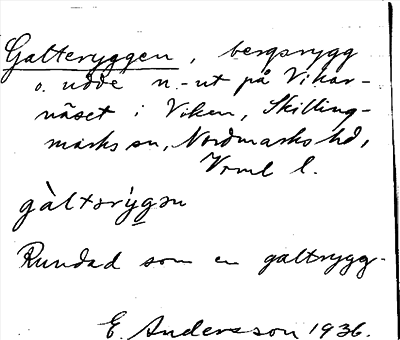 Galteryggen, bergsrygg
o. udde n.-ut på Vikar-
näset i Viken, Skilling-
marks sn, Nordmarks hd,
Vrml l.
gàltərýgən
Rundad som en galtrygg.
E. Andersson 1936.